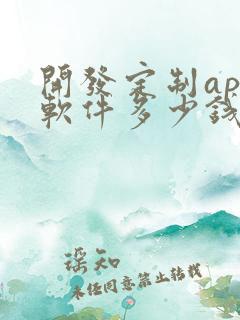 開發定制ap
軟件多少錢
瑤知
未经同意禁止转载